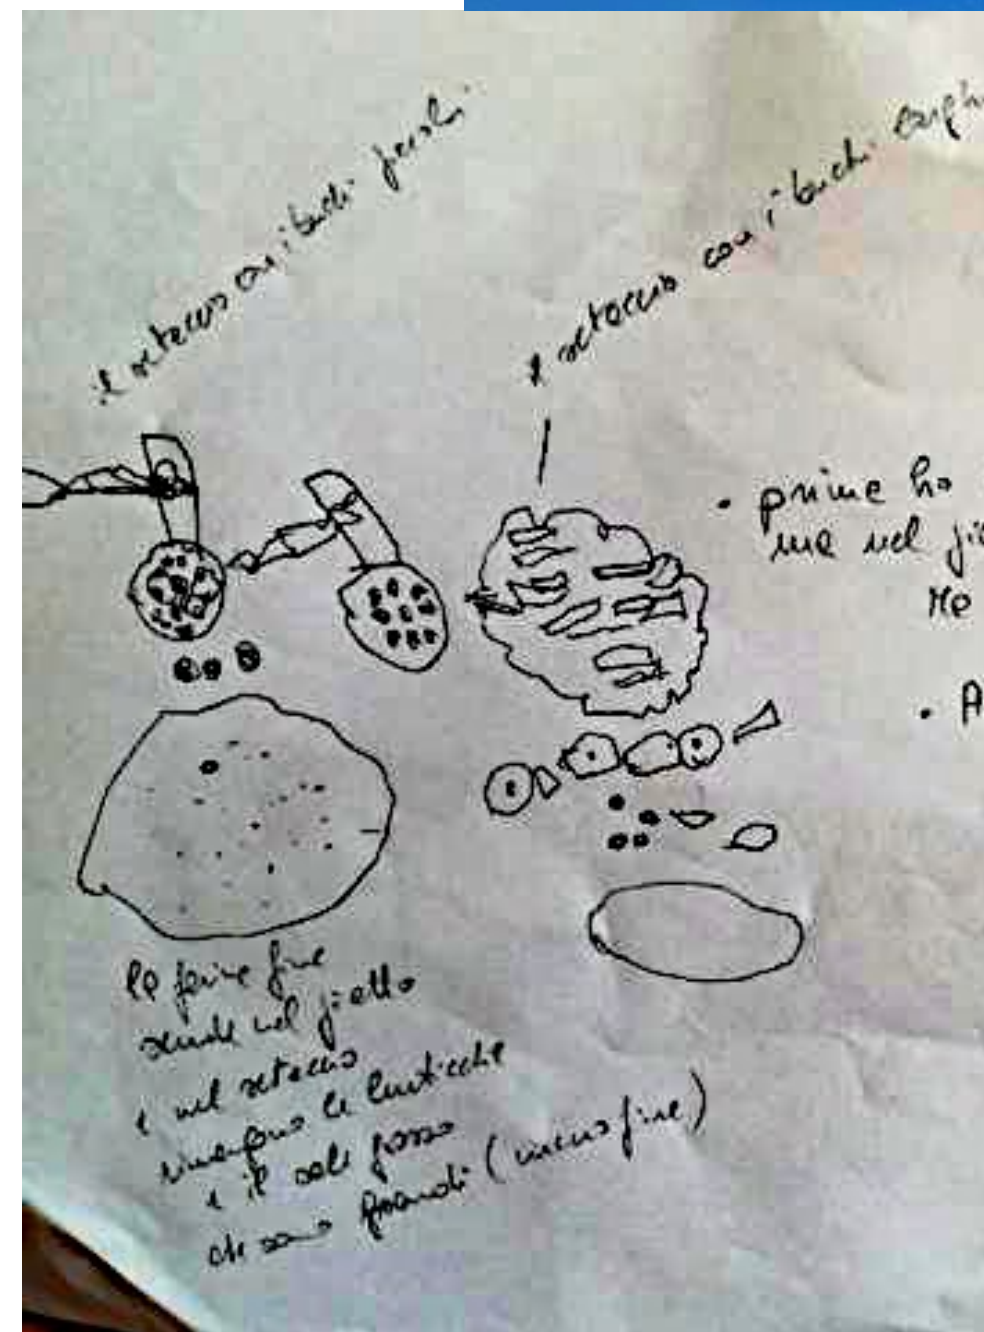 il setaccio con i buchi piccoli
il setaccio con i buchi larghi
• prima ho
ma nel
• A
la farina fine
scende nel piatto
e nel setaccio
rimangono le lenticchie
e il sale grosso
che sono grandi (meno fine)